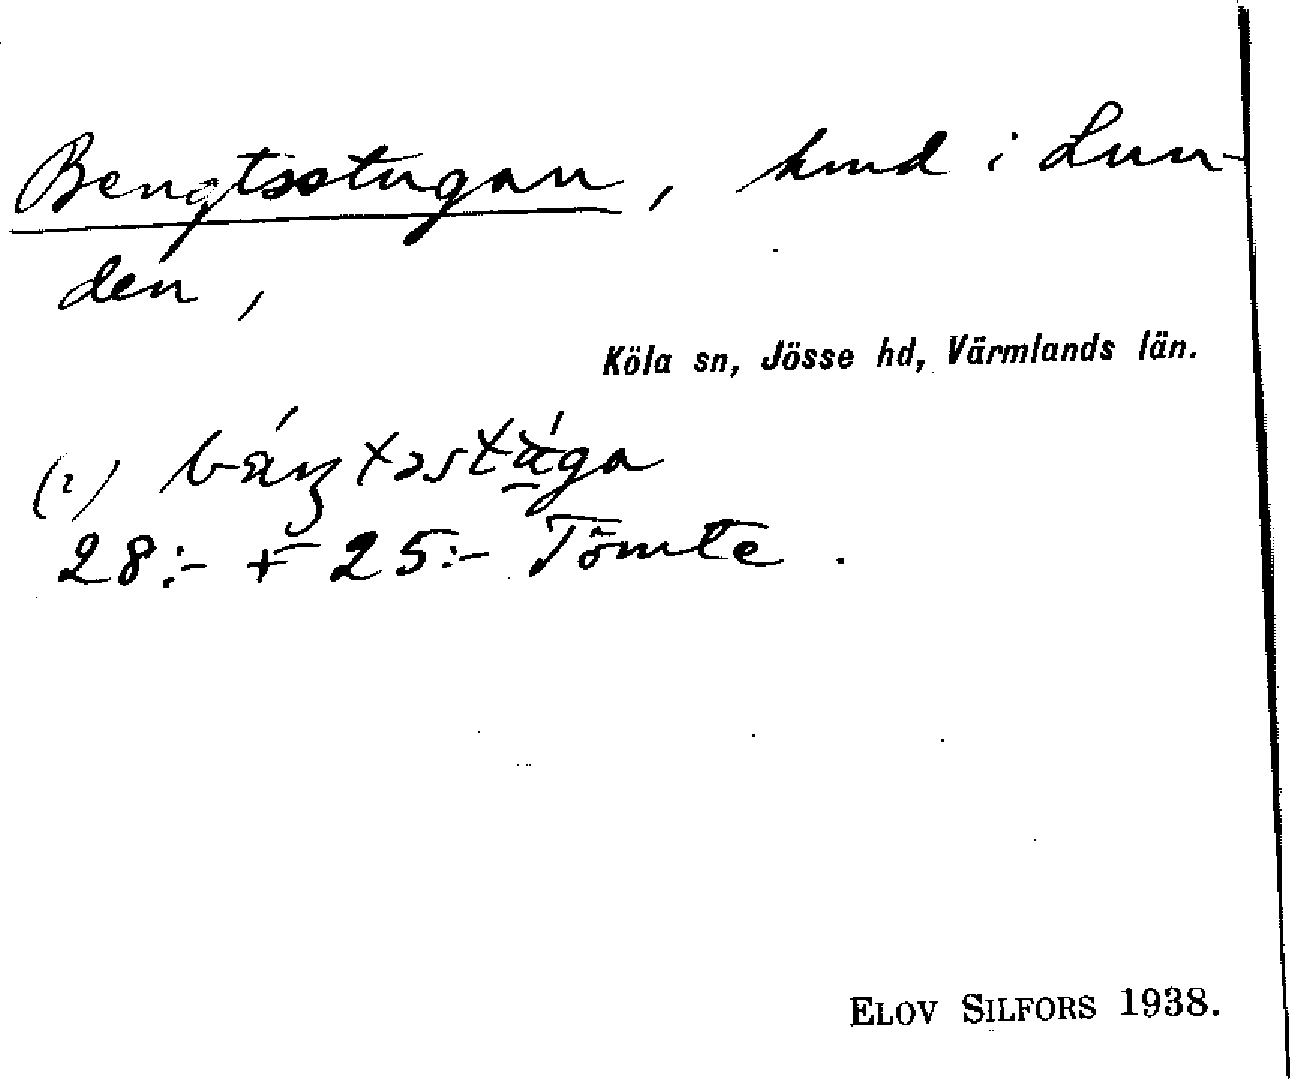 Bengtsstugan, hmd i Lun-
den,
Köla sn, Jösse hd, Värmlands län.
28:- + 25:- Tömte.
ELOV SILFORS 1938.